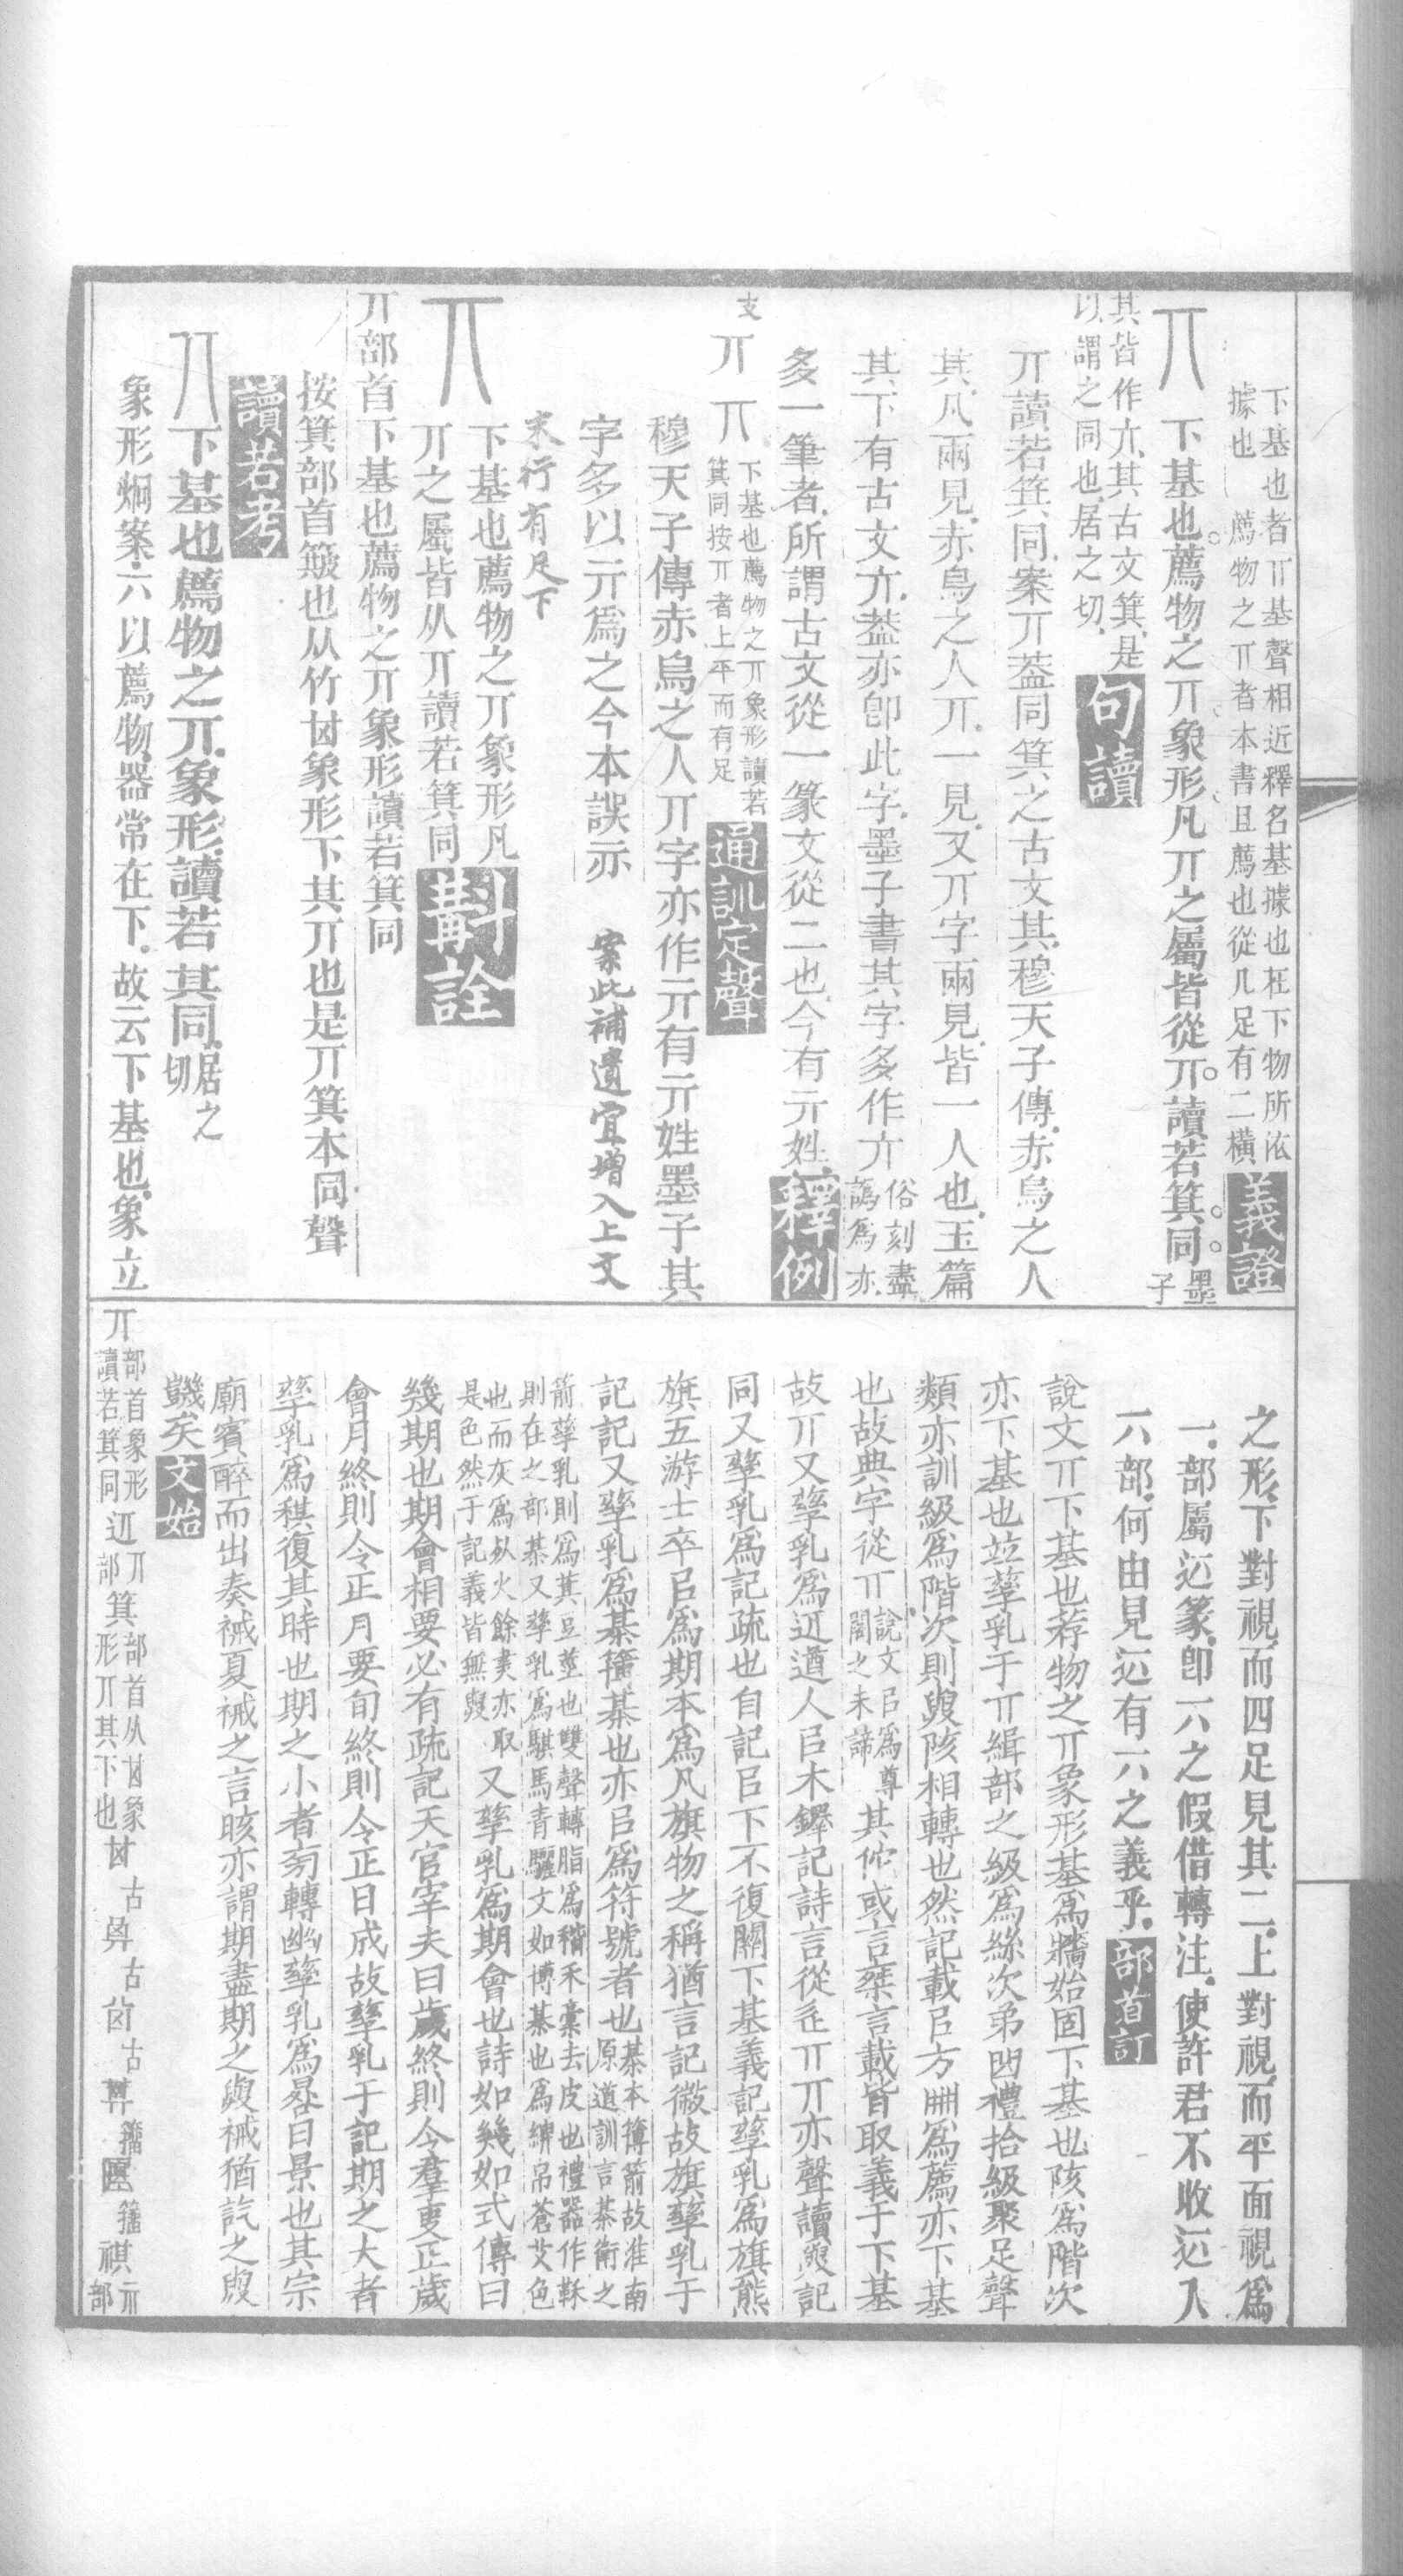 下基也者丌基聲相近釋名基據也在下物所依
據也　薦物之丌者本書且薦也從几足有二橫
義證
丌　下基也薦物之丌象形凡丌之屬皆從丌讀若箕同墨子
其皆作亣其古文箕是
以謂之同也居之切
句讀
丌讀若箕同案丌蓋同箕之古文其穆天子傳赤烏之人
其凡兩見赤烏之人丌一見又丌字兩見皆一人也玉篇
其下有古文亣蓋亦卽此字墨子書其字多作亣俗刻盡譌爲亦
多一筆者所謂古文從一篆文從二也今有亓姓
釋例
支
丌　丌　下基也薦物之丌象形讀若箕同按丌者上平而有足
通訓定聲
穆天子傳赤烏之人丌字亦作亓有亓姓墨子其
字多以亓爲之今本誤示　案此補遺宜增入上文
末行有足下
丌　下基也薦物之丌象形凡
丌之屬皆从丌讀若箕同
斠詮
丌部首下基也薦物之丌象形讀若箕同
按箕部首簸也从竹𠀠象形下其丌也是丌箕本同聲
讀若考
丌　下基也薦物之丌象形讀若其同居之切
象形烱案六以薦物器常在下故云下基也象立
之形下對視而四足見其二上對視而平面視爲
一部屬迈篆卽六之假借轉注使許君不收迈入
六部何由見迈有六之義乎
部首訂
說文丌下基也荐物之丌象形基爲牆始固下基也陔爲階次
亦下基也竝孳乳于丌緝部之級爲絲次弟曲禮拾級聚足聲
類亦訓級爲階次則與陔相轉也然記載㠯方冊爲薦亦下基
也故典字從丌說文㠯爲尊閣之未諦其他或言枽言載皆取義于下基
故丌又孳乳爲䢋遒人㠯木鐸記詩言從辵丌丌亦聲讀與記
同又孳乳爲記疏也自記㠯下不復關下基義記孳乳爲旗熊
旗五游士卒㠯爲期本爲凡旗物之稱猶言記徽故旗孳乳于
記記又孳乳爲綦簙綦也亦㠯爲符號者也綦本簙箭故淮南原道訓言綦衛之
箭孳乳則爲萁豆莖也雙聲轉脂爲稭禾稾去皮也禮器作鞂
則在之部綦又孳乳爲騏馬青驪文如博綦也爲綥帛蒼艾色
也而灰爲从火餘㶳亦取
是色然于記義皆無與
又孳乳爲期會也詩如幾如式傳曰
幾期也期會相要必有疏記天官宰夫曰歲終則令羣吏正歲
會月終則令正月要旬終則令正日成故孳乳于記期之大者
孳乳爲稘復其時也期之小者旁轉幽孳乳爲晷日景也其宗
廟賓醉而出奏祴夏祴之言晐亦謂期盡期之與祴猶訖之與
䜴矣
文始
丌部首象形讀若箕同　䢋丌部　箕部首从𠀠象形丌其下也　𠀠古　𠔛古　古　籀　籀　祺示部